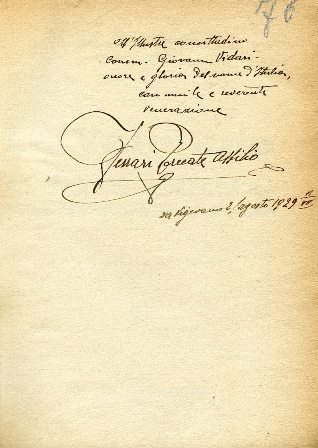 76
all'Illustre concittadino
Comm. Giovanni Vidari
onore e gloria del nome d'Italia,
con umile e reverente
venerazione
Ferrari Trecate Attilio
da Vigevano 2, agosto 1929
VII